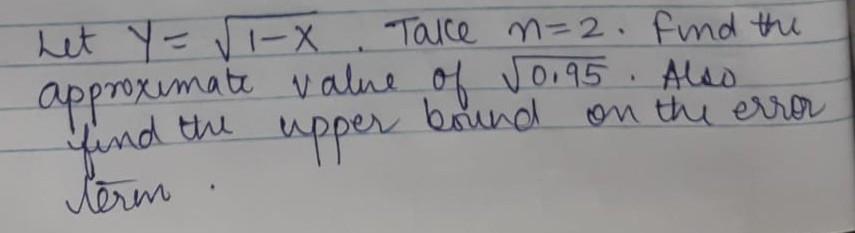 Let Y = √1-X . Take n=2. Find the
approximate value of √0.95 . Also
find the upper bound on the error
term .